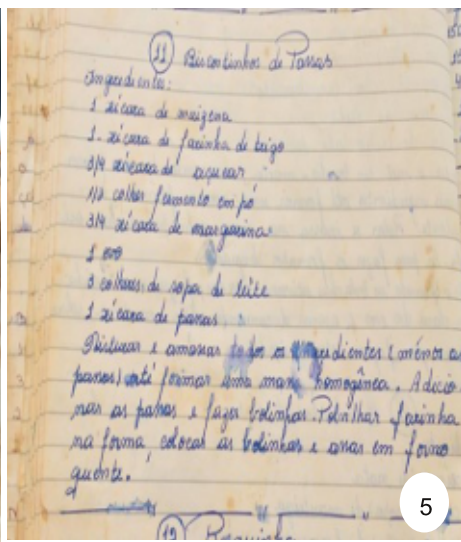 11 Biscoitinhos de Passas
Ingredientes:
1 xícara de maizena
1 xícara de farinha de trigo
3/4 xícara de açucar
1/2 colher fermento em pó
3/4 xícara de margarina
1 ovo
3 colheres de sopa de leite
1 xícara de passas.
Misturar e amassar todos os ingredientes (menos as
passas) até formar uma massa homogênea. Adicio
nar as passas e fazer bolinhas. Polvilhar farinha
na forma, colocar as bolinhas e assar em forno
quente.
5
12